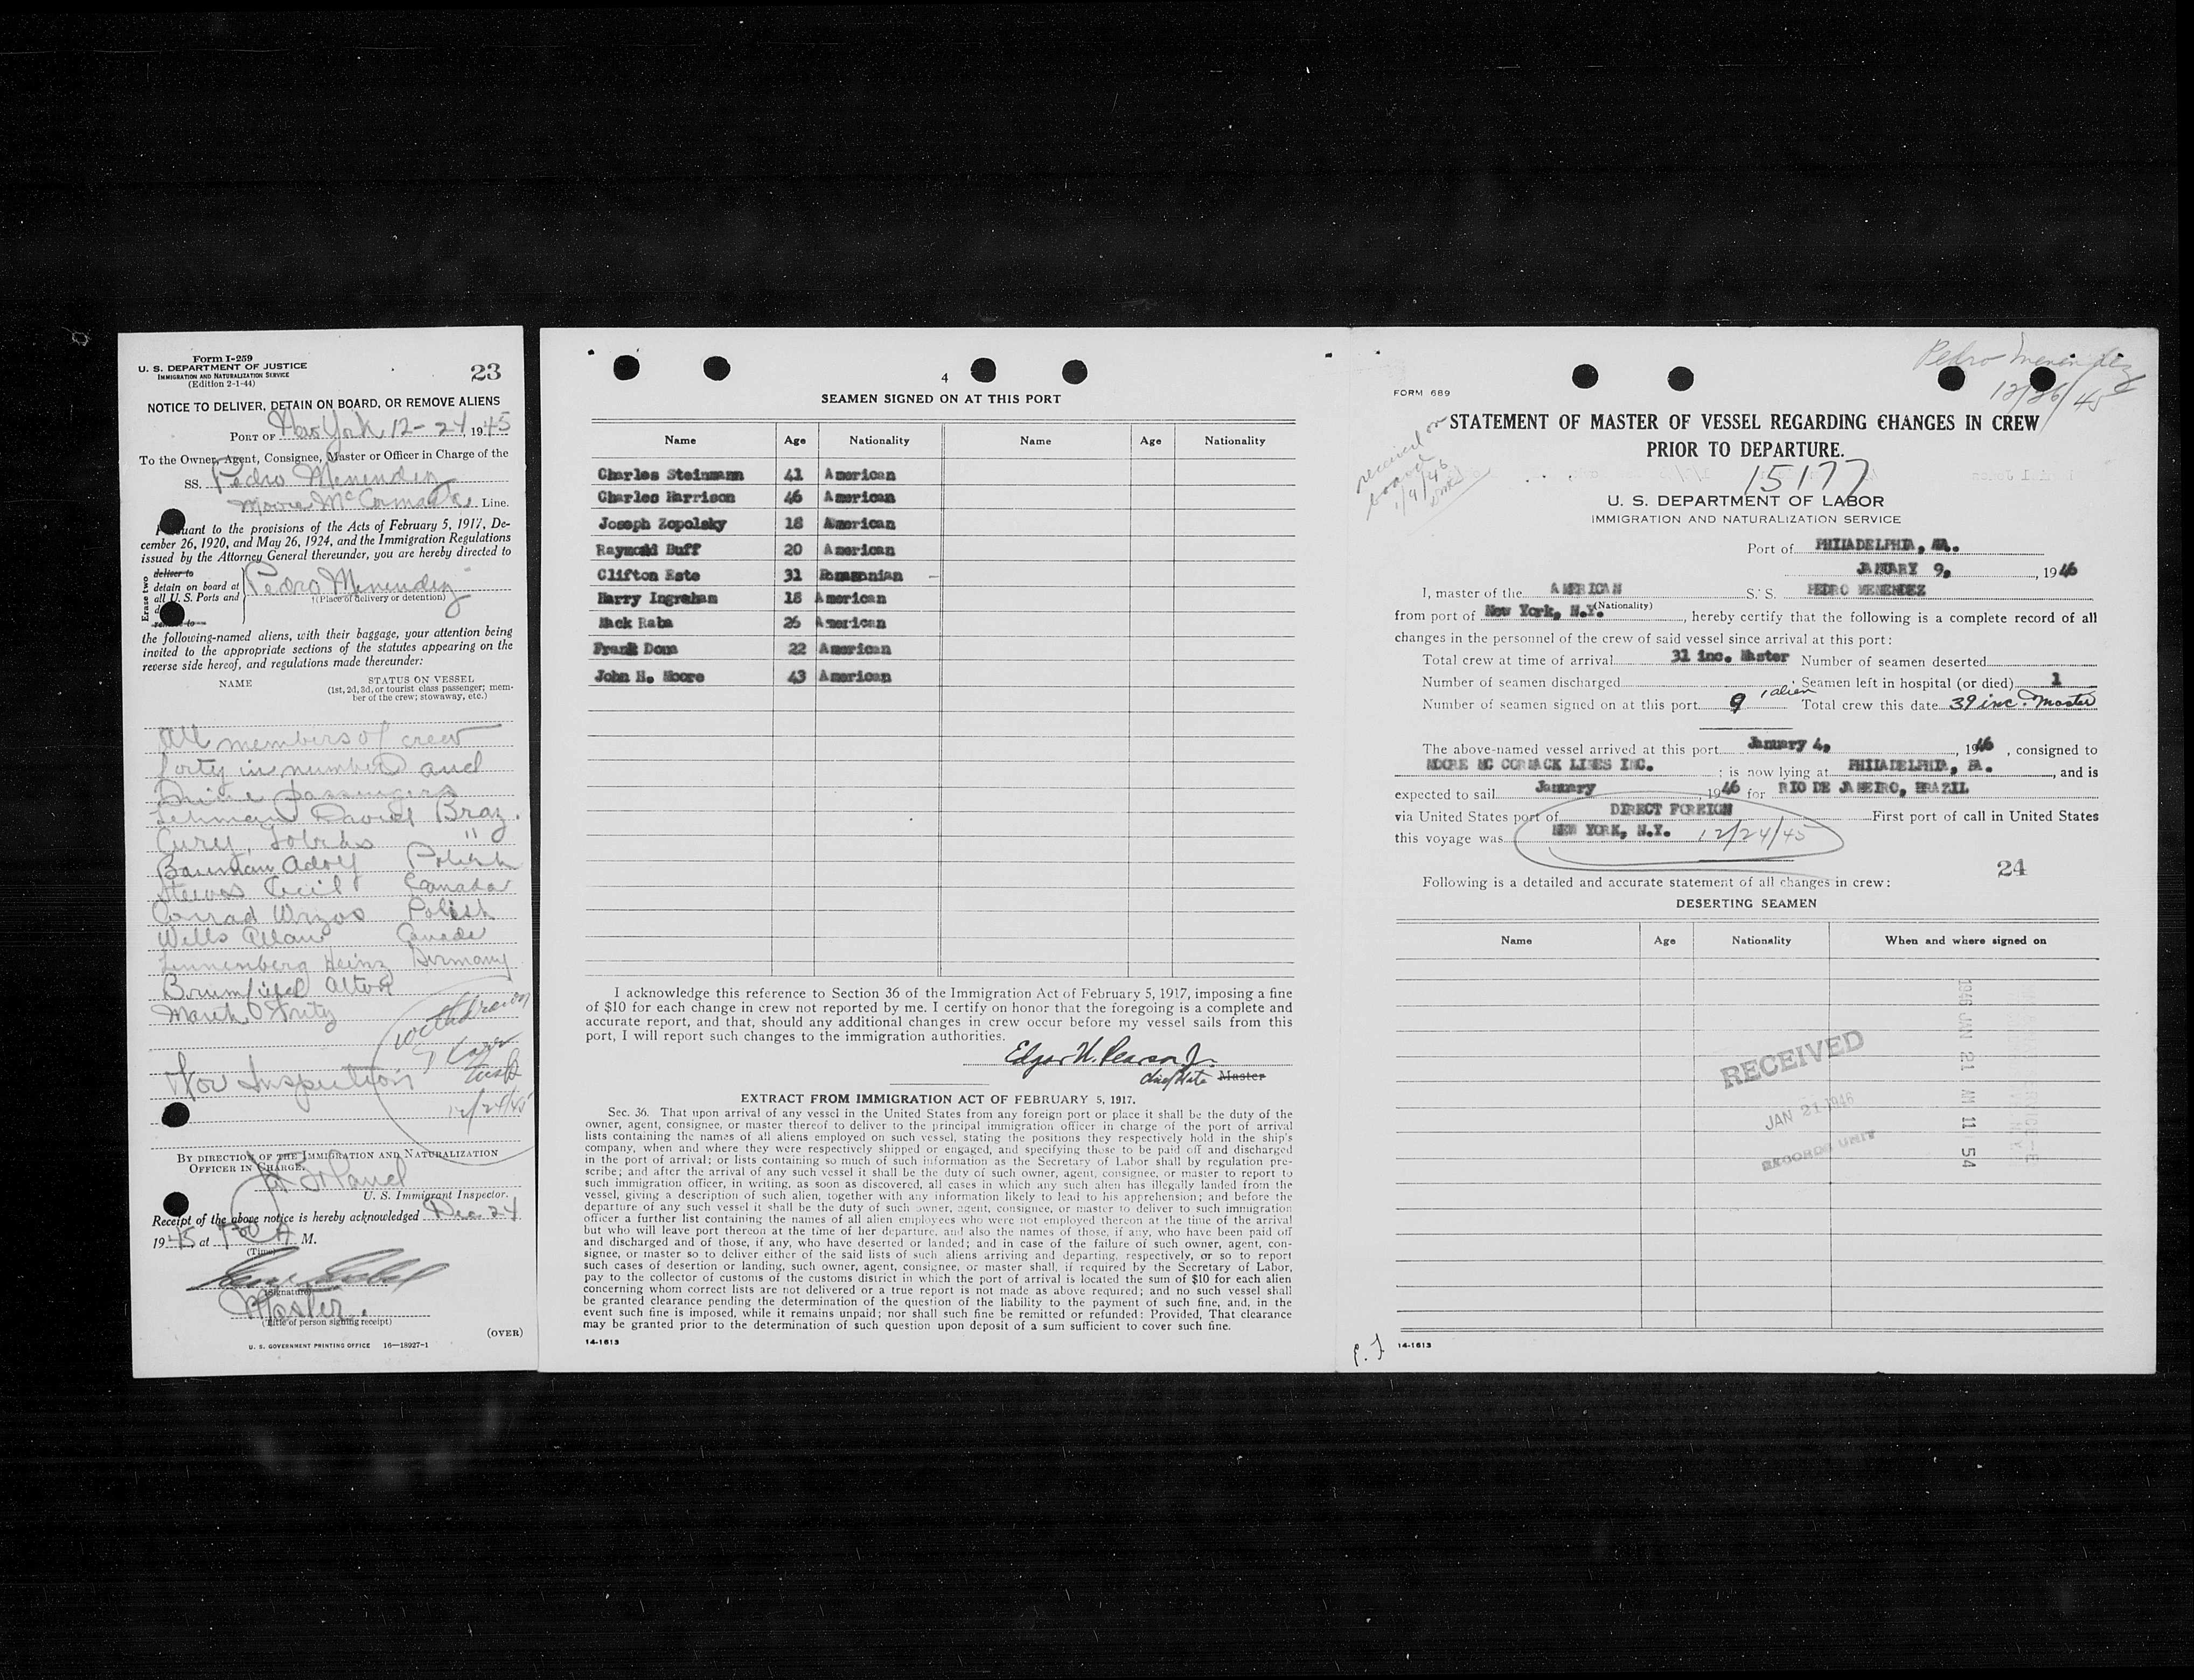 Form I-259
U. S. DEPARTMENT OF JUSTICE
IMMIGRATION AND NATURALIZATION SERVICE
(Edition 2-1-44)
23
NOTICE TO DELIVER, DETAIN ON BOARD, OR REMOVE ALIENS
PORT OF New York 12-24, 1945
To the Owner, Agent, Consignee, Master or Officer in Charge of the
SS. Pedro Menendez
Moore McCormack Line.
Pursuant to the provisions of the Acts of February 5, 1917, De-
cember 26, 1920, and May 26, 1924, and the Immigration Regulations
issued by the Attorney General thereunder, you are hereby directed to
Erase two
deliver to
detain on board at
all U. S. Ports and
Pedro Menendez
(Place of delivery or detention)
remove to
the following-named aliens, with their baggage, your attention being
invited to the appropriate sections of the statutes appearing on the
reverse side hereof, and regulations made thereunder:
NAME
STATUS ON VESSEL
(1st, 2d, 3d, or tourist class passenger; mem-
ber of the crew; stowaway, etc.)
All members of crew
forty in number and
passengers
Lehman David Braz.
Cury, "
Bauman Adolf Polish
Cecil Canada
Conrad Polish
Wells Allan Canada
Linnenberg Heinz Germany
Brumfield Alton
Fritz
withdrawn
12/24/45
For Inspection
BY DIRECTION OF THE IMMIGRATION AND NATURALIZATION
OFFICER IN CHARGE.
U. S. Immigrant Inspector.
Receipt of the above notice is hereby acknowledged Dec. 24
1945, at A M.
(Time)
(Signature)
Master.
(Title of person signing receipt)
(OVER)
U. S. GOVERNMENT PRINTING OFFICE 16—18927-1
4
SEAMEN SIGNED ON AT THIS PORT
Name Age Nationality Name Age Nationality
Charles Steinmann 41 American
Charles Harrison 46 American
Joseph Zopolsky 18 American
Raymond Buff 20 American
Clifton Este 31 Panamanian
Harry Ingraham 18 American
Mack Raba 26 American
Frank Dom 22 American
John H. Moore 43 American
I acknowledge this reference to Section 36 of the Immigration Act of February 5, 1917, imposing a fine
of $10 for each change in crew not reported by me. I certify on honor that the foregoing is a complete and
accurate report, and that, should any additional changes in crew occur before my vessel sails from this
port, I will report such changes to the immigration authorities.
Edgar W. Pearson Jr.
Chief Mate Master
EXTRACT FROM IMMIGRATION ACT OF FEBRUARY 5, 1917.
Sec. 36. That upon arrival of any vessel in the United States from any foreign port or place it shall be the duty of the
owner, agent, consignee, or master thereof to deliver to the principal immigration officer in charge of the port of arrival
lists containing the names of all aliens employed on such vessel, stating the positions they respectively hold in the ship's
company, when and where they were respectively shipped or engaged, and specifying those to be paid off and discharged
in the port of arrival; or lists containing so much of such information as the Secretary of Labor shall by regulation pre-
scribe; and after the arrival of any such vessel it shall be the duty of such owner, agent, consignee, or master to report to
such immigration officer, in writing, as soon as discovered, all cases in which any such alien has illegally landed from the
vessel, giving a description of such alien, together with any information likely to lead to his apprehension; and before the
departure of any such vessel it shall be the duty of such owner, agent, consignee, or master to deliver to such immigration
officer a further list containing the names of all alien employees who were not employed thereon at the time of the arrival
but who will leave port thereon at the time of her departure, and also the names of those, if any, who have been paid off
and discharged and of those, if any, who have deserted or landed; and in case of the failure of such owner, agent, con-
signee, or master so to deliver either of the said lists of such aliens arriving and departing, respectively, or so to report
such cases of desertion or landing, such owner, agent, consignee, or master shall, if required by the Secretary of Labor,
pay to the collector of customs of the customs district in which the port of arrival is located the sum of $10 for each alien
concerning whom correct lists are not delivered or a true report is not made as above required; and no such vessel shall
be granted clearance pending the determination of the question of the liability to the payment of such fine, and, in the
event such fine is imposed, while it remains unpaid; nor shall such fine be remitted or refunded: Provided, That clearance
may be granted prior to the determination of such question upon deposit of a sum sufficient to cover such fine.
14-1613
Pedro Menendez
12/26/45
FORM 689
received on
board
1/9/46
STATEMENT OF MASTER OF VESSEL REGARDING CHANGES IN CREW
PRIOR TO DEPARTURE.
15177
U. S. DEPARTMENT OF LABOR
IMMIGRATION AND NATURALIZATION SERVICE
Port of PHILADELPHIA, PA.
JANUARY 9, , 1946
I, master of the AMERICAN S. S. PEDRO MENENDEZ
(Nationality)
from port of New York, N.Y. , hereby certify that the following is a complete record of all
changes in the personnel of the crew of said vessel since arrival at this port:
Total crew at time of arrival 31 inc. Master Number of seamen deserted
Number of seamen discharged Seamen left in hospital (or died) 1
Number of seamen signed on at this port 9 1 alien Total crew this date 39 inc. Master
The above-named vessel arrived at this port January 4, , 1946 , consigned to
MOORE MC CORMACK LINES INC. ; is now lying at PHILADELPHIA, PA. , and is
expected to sail January , 1946 for RIO DE JANEIRO, BRAZIL
via United States port of DIRECT FOREIGN First port of call in United States
this voyage was NEW YORK, N.Y. 12/24/45
24
Following is a detailed and accurate statement of all changes in crew:
DESERTING SEAMEN
Name Age Nationality When and where signed on
RECEIVED
JAN 21 1946
RECORDS UNIT
1946 JAN 21 AM 11 54
14-1613